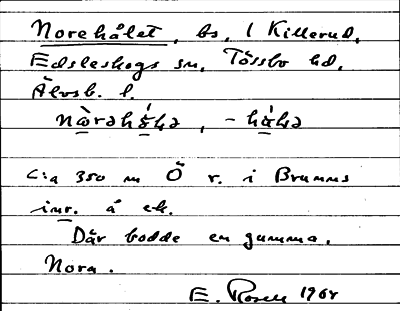 Norehålet, bs, 1 Killerud,
Edsleskogs sn, Tössbo hd,
Älvsb. l.
nòrəhó̀lə, -hålə
C:a 350 m Ö r. i Brunns
inr. å ek.
Där bodde en gumma,
Nora.
E. Rosell 1964